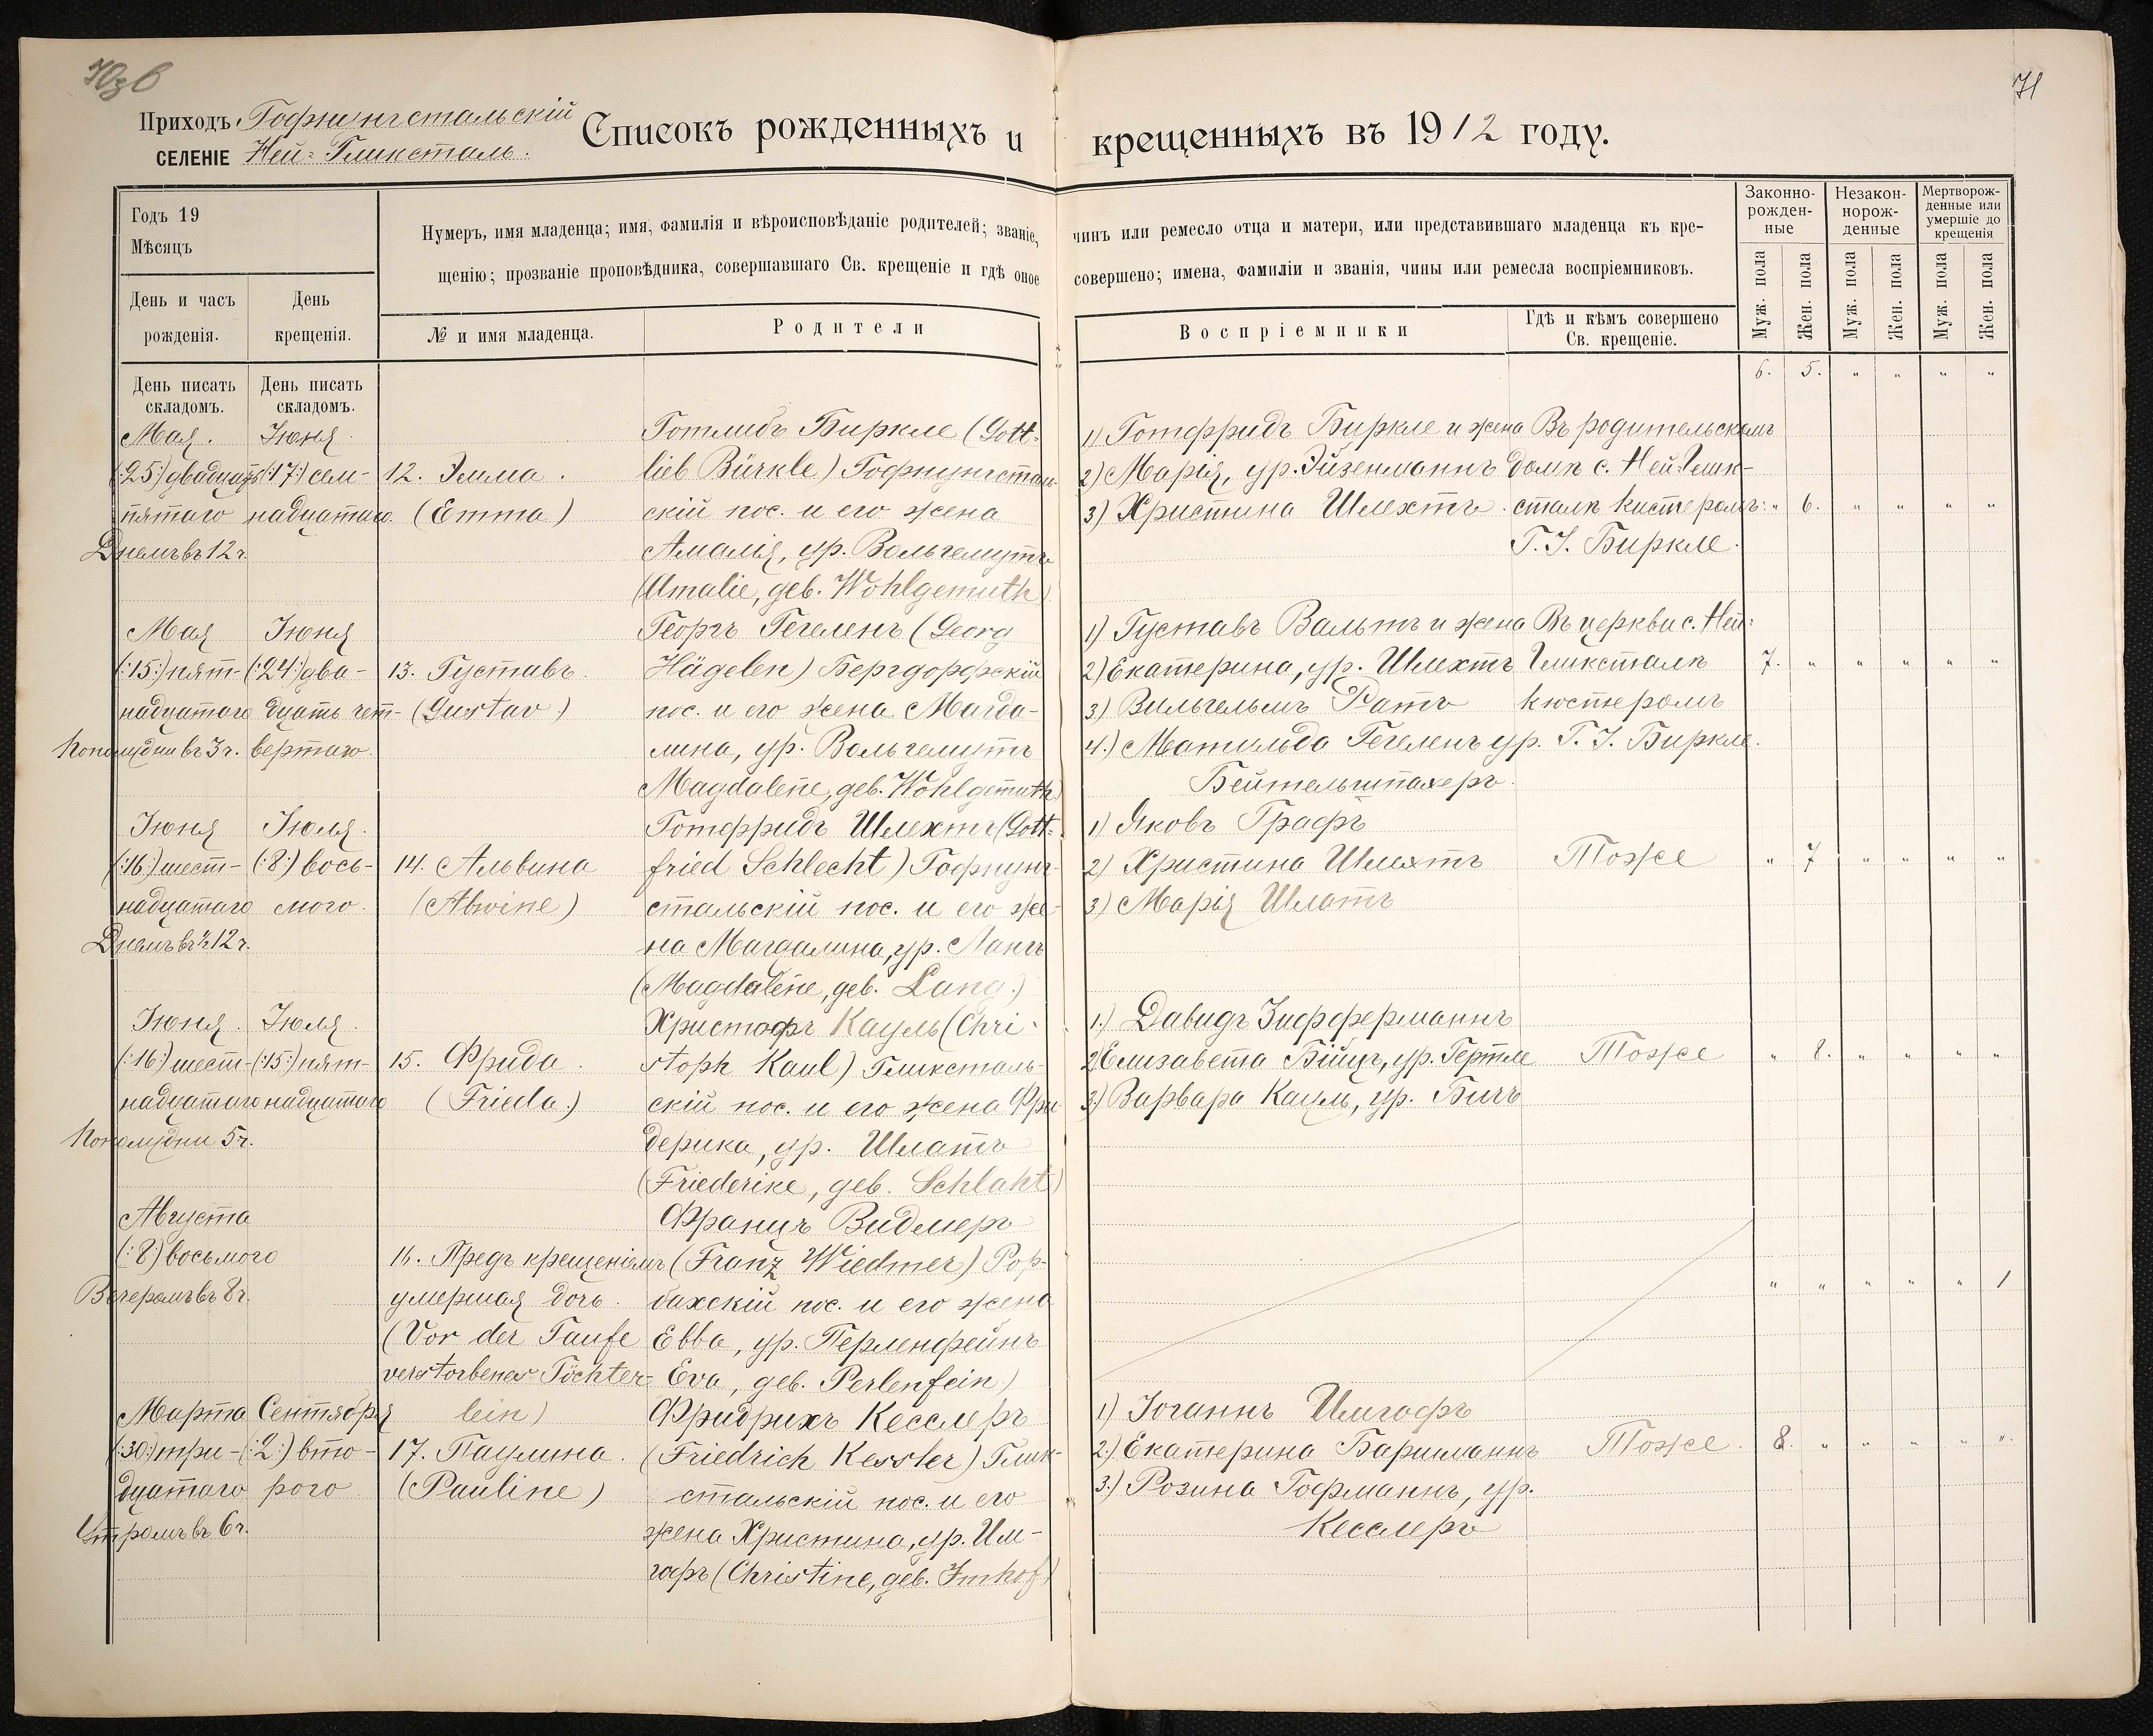 70 зв
71
Приходъ Гофнунгстальскій
СЕЛЕНІЕ Ней-Гликсталь.
Списокъ рожденныхъ и крещенныхъ въ 1912 году.
Годъ 19
Мѣсяцъ
День и часъ рожденія.
День крещенія.
Нумеръ, имя младенца; имя, фамилія и вѣроисповѣданіе родителей; званіе, чинъ или ремесло отца и матери, или представившаго младенца къ кре-
щенію; прозваніе проповѣдника, совершавшаго Св. крещеніе и гдѣ оное совершено; имена, фамиліи и званія, чины или ремесла воспріемниковъ.
№ и имя младенца.
Родители
Воспріемники
Гдѣ и кѣмъ совершено
Св. крещеніе.
Законно-
рожден-
ные
Незакон-
норож-
денные
Мертворож-
денные или
умершіе до
крещенія
Муж. пола
Жен. пола
Муж. пола
Жен. пола
Муж. пола
Жен. пола
День писать
складомъ.
День писать
складомъ.
6. 5. " " " "
Мая.
(:25:) двадцать
пятаго
Днемъ въ 12 ч.
Іюня
(:17:) сем-
надцатаго.
12. Эмма.
(Emma)
Готлибъ Биркле (Gott-
lieb Bürkle) Гофнунгсталь-
скій пос. и его жена
Амалія, ур. Вольгемутъ
(Amalie, geb. Wohlgemuth)
1) Готфридъ Биркле и жена
2) Марія, ур. Эйзенманнъ
3) Христина Шлехтъ.
Въ родительскомъ
домѣ с. Ней-Глик-
сталѣ кистеромъ:
Г. І. Биркле.
" 6. " " " "
Мая
(:15:) пят-
надцатаго
Пополудни въ 3 ч.
Іюня
(:24:) два-
дцать чет-
вертаго.
13. Густавъ.
(Gustav)
Георгъ Гегеленъ (Georg
Hägelen) Бергдорфскій
пос. и его жена Магда-
лина, ур. Вольгемутъ
Magdalene, geb. Wohlgemuth)
1) Густавъ Вальтъ и жена
2) Екатерина, ур. Шлехтъ
3) Вильгельмъ Ратъ
4.) Матильда Гегеленъ ур.
Бейтельшпахеръ.
Въ церкви с. Ней-
Гликсталѣ
кюстеромъ
Г. І. Биркле.
7. " " " " "
Іюня
(:16:) шест-
надцатаго
Днемъ въ ½12 ч.
Іюля.
(:8:) вось-
мого.
14. Альвина
(Alwine)
Готфридъ Шлехтъ (Gott-
fried Schlecht) Гофнунг-
стальскій пос. и его же-
на Магдалина, ур. Лангъ
(Magdalene, geb. Lang.)
1) Яковъ Графъ
2) Христина Шлехтъ
3) Марія Шлатъ
Тоже
" 7 " " " "
Іюня.
(:16:) шест-
надцатаго
Пополудни 5 ч.
Іюля.
(:15:) пят-
надцатаго
15. Фрида.
(Frieda.)
Христофъ Кауль (Chri-
stoph Kaul) Гликсталь-
скій пос. и его жена Фри-
дерика, ур. Шлатъ
(Friederike, geb. Schlaht)
1.) Давидъ Зифферманнъ
2) Елизавета Бійцъ, ур. Гертле
3.) Варвара Кауль, ур. Бичъ
Тоже
" 8. " " " "
Августа
(:8:) восьмого
Вечеромъ въ 8 ч.
16. Предъ крещеніемъ
умершая дочь.
(Vor der Taufe
verstorbenes Töchter-
lein)
Францъ Видмеръ
(Franz Wiedmer) Рор-
бахскій пос. и его жена
Евва, ур. Перленфейнъ
Eva, geb. Perlenfein)
" " " " " 1
Марта
(:30:) три-
дцатаго
Утромъ въ 6 ч.
Сентября
(:2:) вто-
рого
17. Паулина.
(Pauline)
Фридрихъ Кесслеръ
(Friedrich Kessler) Глик-
стальскій пос. и его
жена Христина, ур. Им-
гофъ (Christine, geb. Imhof)
1) Іоганнъ Имгофъ
2.) Екатерина Баришманнъ
3.) Розина Гофманнъ, ур.
Кесслеръ
Тоже.
8. " " " " "